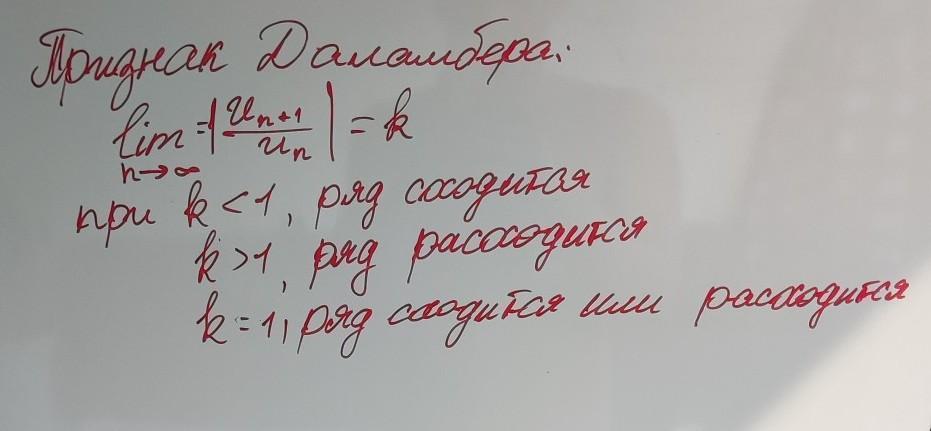 Признак Даламбера:
lim = |u_{n+1}/u_n| = k
n→∞
при k < 1, ряд сходится
k > 1, ряд расходится
k = 1, ряд сходится или расходится